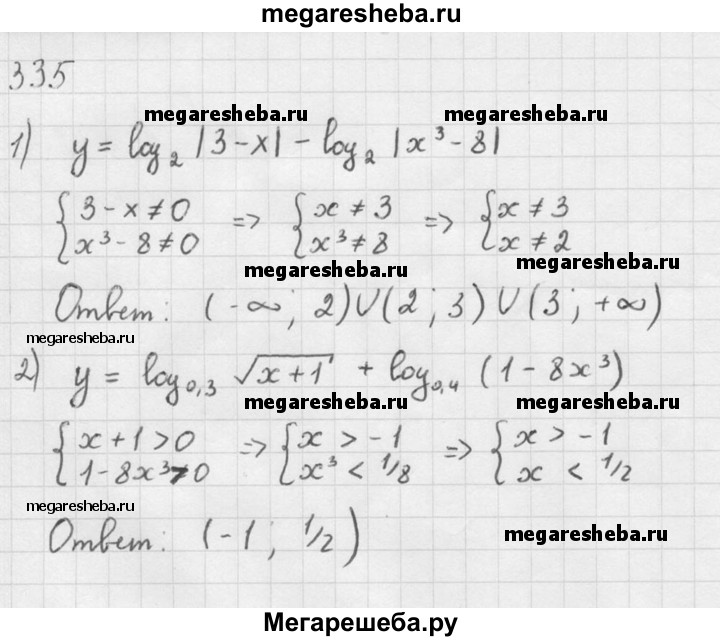 megaresheba.ru
335
megaresheba.ru megaresheba.ru
1) y = log₂ |3 - x| - log₂ |x³ - 8|
{ 3 - x ≠ 0 => { x ≠ 3 => { x ≠ 3
{ x³ - 8 ≠ 0 { x³ ≠ 8 { x ≠ 2
megaresheba.ru megaresheba.ru
Ответ: (-∞; 2) ∪ (2; 3) ∪ (3; +∞)
megaresheba.ru
2) y = log₀,₃ √(x + 1) + log₀,₄ (1 - 8x³)
megaresheba.ru megaresheba.ru
{ x + 1 > 0 => { x > -1 => { x > -1
{ 1 - 8x³ > 0 { x³ < 1/8 { x < 1/2
megaresheba.ru
Ответ: (-1; 1/2)
megaresheba.ru
Мегарешеба.ру